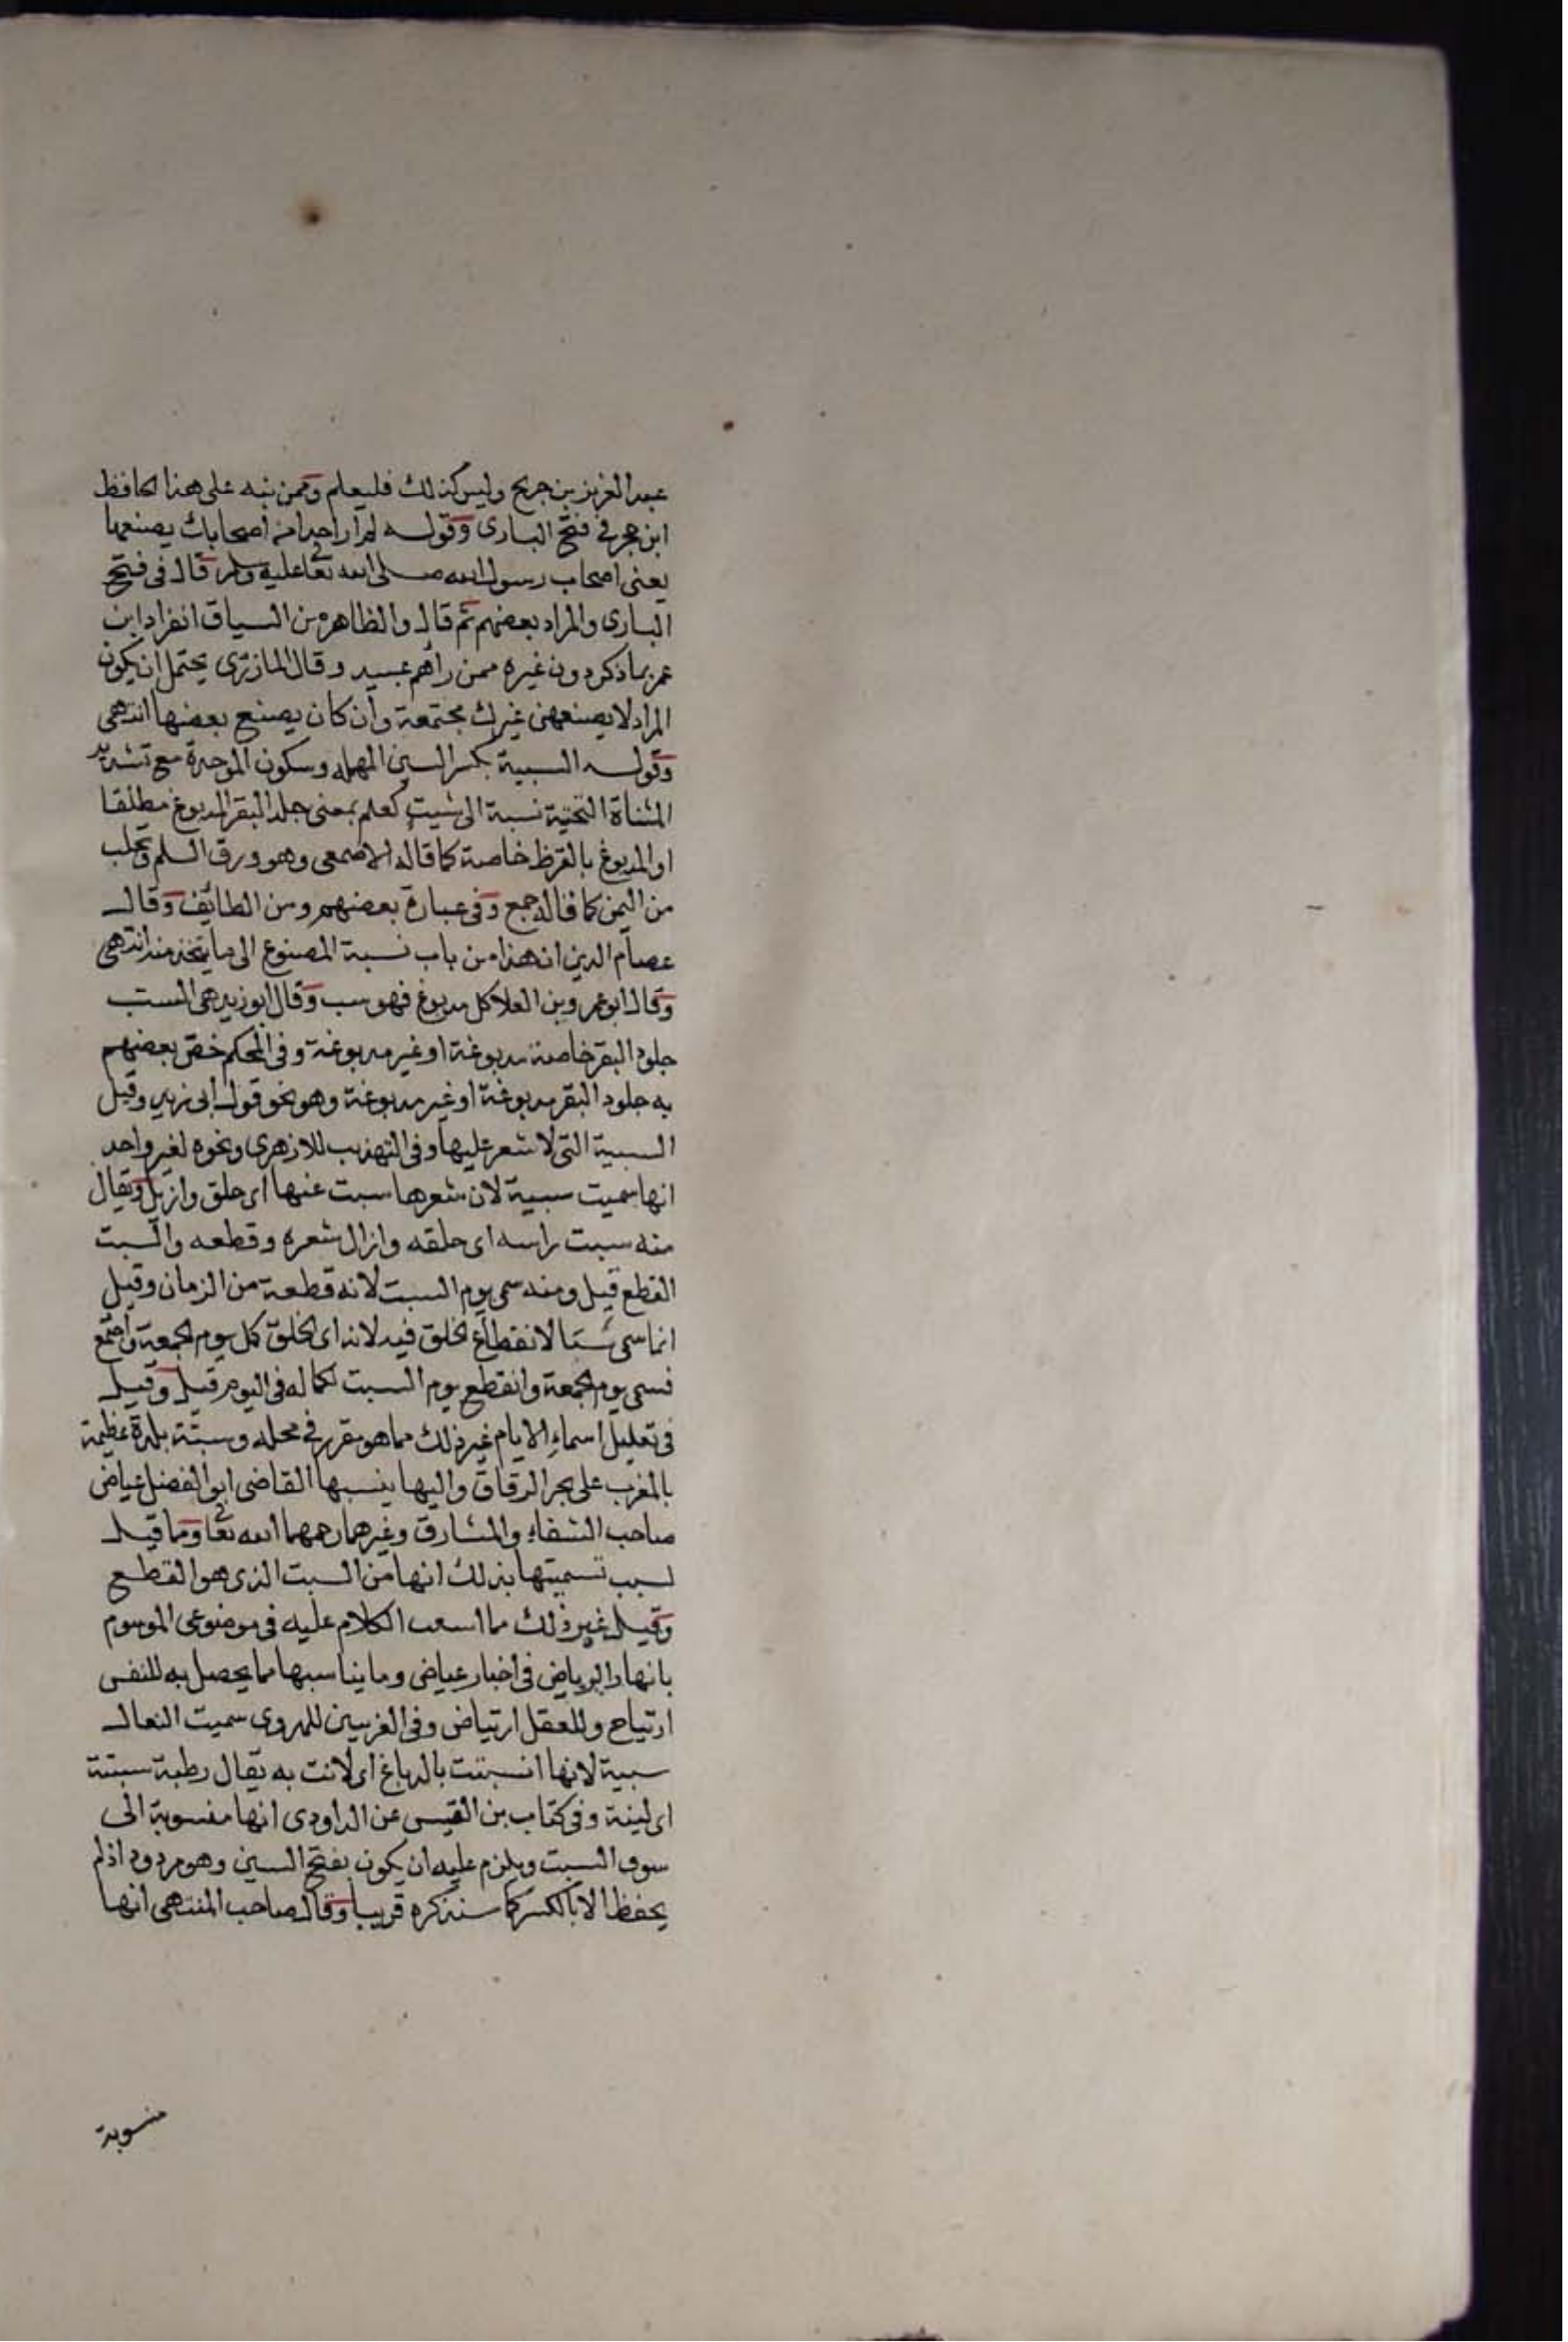 عبد العزيز بن جريج وليس كذلك فليعلم وممن نبه على هذا الحافظ
ابن حجر في فتح البارى وقوله لم ار احدا من اصحابك يصنعها
يعنى اصحاب رسول الله صلى الله تعا عليه وسلم قال فى فتح
البارى والمراد بعضهم ثم قال والظاهر من السياق انفراد ابن
عمر بما ذكر دون غيره ممن رآهم عبيد وقال المازرى يحتمل ان يكون
المراد لا يصنعهن غيرك مجتمعة وان كان يصنع بعضها انتهى
وقوله السبية بكسر السين المهمله وسكون الموحدة مع تشديد
المثناة التحتية نسبة الى سبت كعلم بمعنى جلد البقر المدبوغ مطلقا
او المدبوغ بالقرظ خاصة كما قاله الاصمعى وهو ورق السلم وتجلب
من اليمن كما قاله جمع وفى عبارة بعضهم ومن الطائف وقال
عصام الدين ان هذا من باب نسبة المصنوع الى ما يتخذ منه انتهى
وقال ابو عمرو بن العلا كل مدبوغ فهو سبت وقال ابو زيد هى السبت
جلود البقر خاصة مدبوغة او غير مدبوغة وفى المحكم خص بعضهم
به جلود البقر مدبوغة او غير مدبوغة وهو نحو قول ابى زيد وقيل
السبية التى لا شعر عليها وفى التهذيب للازهرى ونحوه لغير واحد
انها سميت سبية لان شعرها سبت عنها اى حلق وازيل ويقال
منه سبت راسه اى حلقه وازال شعره وقطعه والسبت
القطع قيل ومنه سمى يوم السبت لانه قطعة من الزمان وقيل
انما سمى سبتا لانقطاع الخلق فيه لانه اى الخلق كمل يوم الجمعة واجتمع
فسمى يوم الجمعة وانقطع يوم السبت لكماله فى اليوم قبله وقيل
فى تعليل اسماء الايام غير ذلك مما هو مقرر في محله وسبتة بلدة عظيمة
بالمغرب على بحر الزقاق واليها ينسبها القاضى ابو الفضل عياض
صاحب الشفاء والمشارق وغيرهما رحمهما الله تعا ومما قيل
لسبب تسميتها بذلك انها من السبت الذى هو القطع
وقيل غير ذلك مما اسعب الكلام عليه فى موضوعى الموسوم
بازهار الرياض فى اخبار عياض وما يناسبها مما يحصل به للنفس
ارتياح وللعقل ارتياض وفى الغريبين للهروى سميت النعال
سبية لانها انسبتت بالدباغ اى لانت به يقال رطبة سبتة
اى لينة وفى كتاب بن القيس عن الداودى انها منسوبة الى
سوق السبت ويلزم عليه ان يكون بفتح السين وهو مردود اذ لم
يحفظ الا بالكسر كما سنذكره قريبا وقال صاحب المنتهى انها
منسوبة